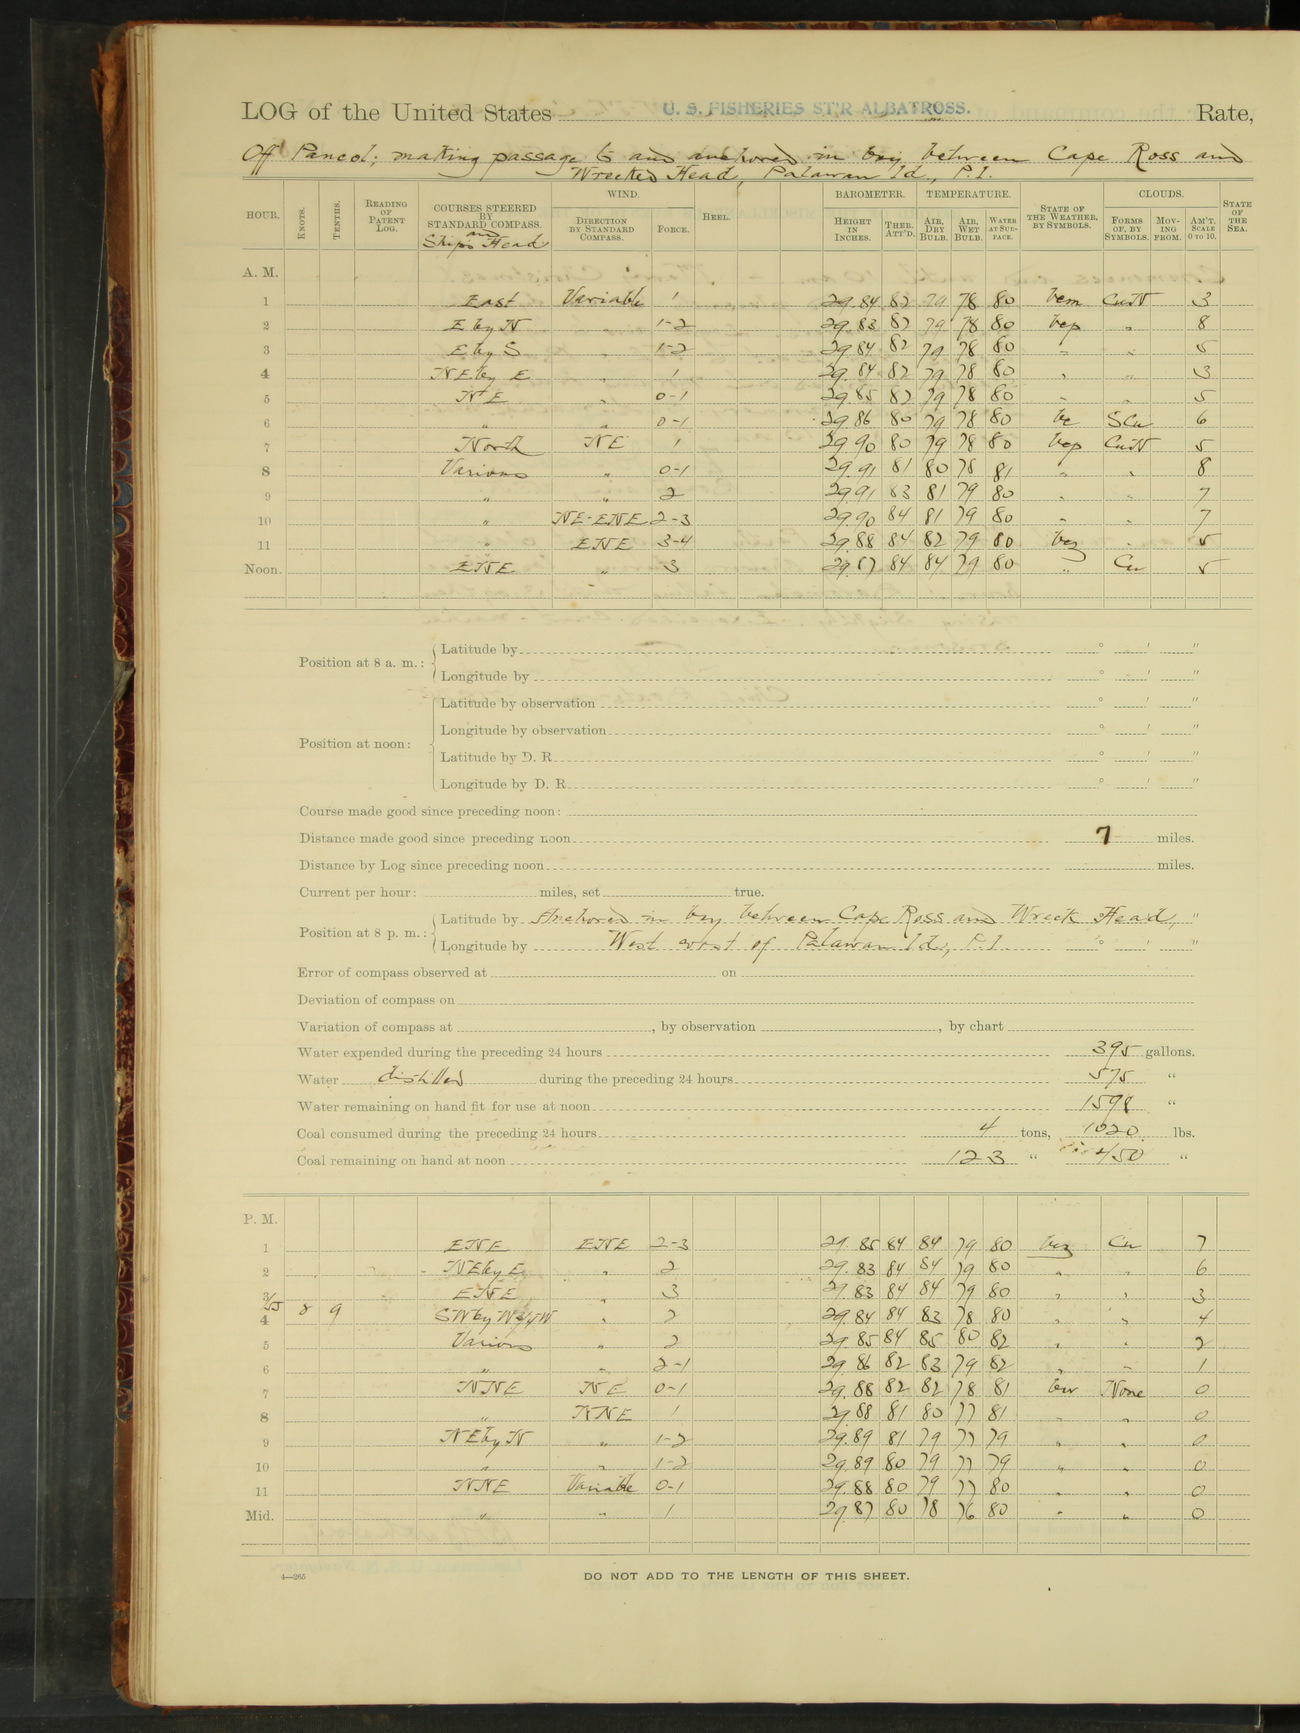 LOG of the United States U. S. FISHERIES ST'R ALBATROSS. Rate,
Off Pancol; making passage to and anchored in bay between Cape Ross and
Wrecked Head, Palawan Id., P.I.
HOUR. KNOTS. TENTHS. READING OF PATENT LOG. COURSES STEERED BY STANDARD COMPASS. and Ship's Head WIND. DIRECTION BY STANDARD COMPASS. FORCE. HEEL. BAROMETER. HEIGHT IN INCHES. THER. ATT'D. TEMPERATURE. AIR, DRY BULB. AIR, WET BULB. WATER AT SURFACE. STATE OF THE WEATHER, BY SYMBOLS. CLOUDS. FORMS OF, BY SYMBOLS. MOVING FROM. AM'T. SCALE 0 TO 10. STATE OF THE SEA.
A. M.
1 East Variable 1 29.84 82 79 78 80 bcm CuN 3
2 E by N " 1-2 29.83 82 79 78 80 bcp " 8
3 E by S " 1-2 29.84 82 79 78 80 " " 5
4 NE by E " 1 29.84 82 79 78 80 " " 3
5 NE " 0-1 29.85 82 79 78 80 " " 5
6 " " 0-1 29.86 80 79 78 80 bc SCu 6
7 North NE 1 29.90 80 79 78 80 bcp CuN 5
8 Various " 0-1 29.91 81 80 78 81 " " 8
9 " " 2 29.91 83 81 79 80 " " 7
10 " NE-ENE 2-3 29.90 84 81 79 80 " " 7
11 " ENE 3-4 29.88 84 82 79 80 bcz " 5
Noon. ENE " 3 29.87 84 84 79 80 " Cu 5
Position at 8 a. m.: Latitude by ° ' "
Longitude by ° ' "
Position at noon: Latitude by observation ° ' "
Longitude by observation ° ' "
Latitude by D. R. ° ' "
Longitude by D. R. ° ' "
Course made good since preceding noon:
Distance made good since preceding noon 7 miles.
Distance by Log since preceding noon miles.
Current per hour: miles, set true.
Position at 8 p. m.: Latitude by Anchored in bay between Cape Ross and Wreck Head, "
Longitude by West coast of Palawan Id., P.I. ° ' "
Error of compass observed at on
Deviation of compass on
Variation of compass at , by observation , by chart
Water expended during the preceding 24 hours 395 gallons.
Water distilled during the preceding 24 hours 575 "
Water remaining on hand fit for use at noon 1598 "
Coal consumed during the preceding 24 hours 4 tons, 1020 lbs.
Coal remaining on hand at noon 123 " 450 "
P. M.
1 ENE ENE 2-3 29.85 84 84 79 80 bcz Cu 7
2 NE by E " 2 29.83 84 84 79 80 " " 6
3 ENE " 3 29.83 84 84 79 80 " " 3
4 8 9 SW by W " 2 29.84 84 83 78 80 " " 4
5 Various " 2 29.85 84 85 80 82 " " 2
6 " " 2-1 29.86 82 83 79 82 " " 1
7 NNE NE 0-1 29.88 82 82 78 81 bv None 0
8 " NNE 1 29.88 81 80 77 81 " " 0
9 NE by N " 1-2 29.89 81 79 77 79 " " 0
10 " " 1-2 29.89 80 79 77 79 " " 0
11 NNE Variable 0-1 29.88 80 79 77 80 " " 0
Mid. " " 1 29.87 80 78 76 80 " " 0
4—265
DO NOT ADD TO THE LENGTH OF THIS SHEET.